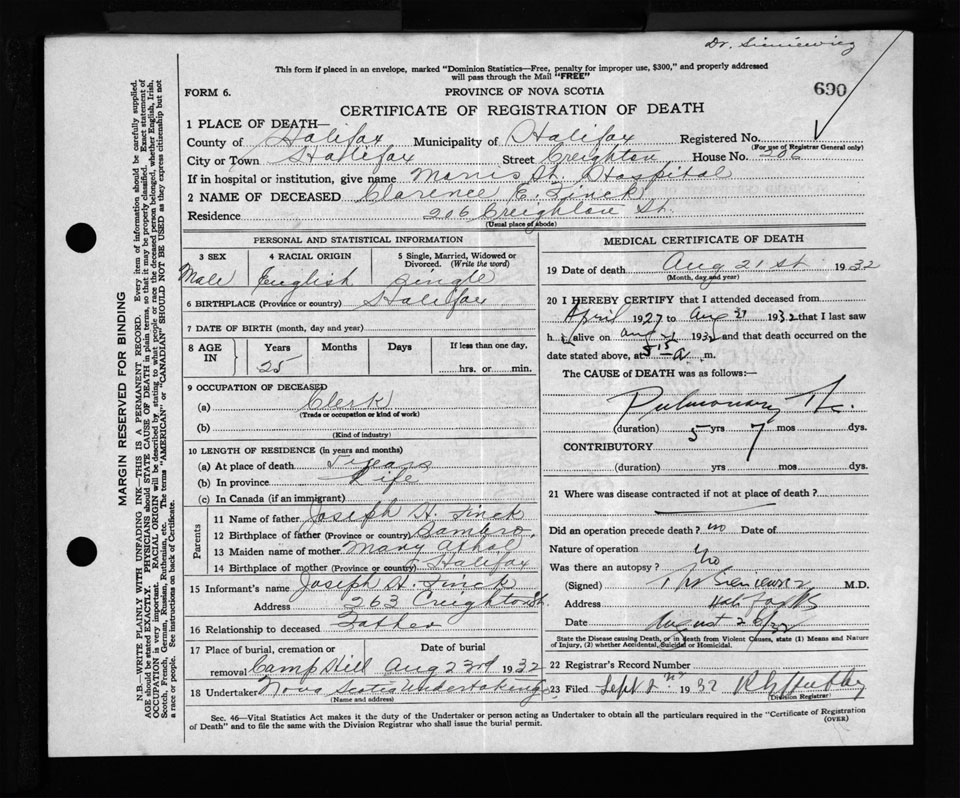 Dr. Sieniewicz
This form if placed in an envelope, marked "Dominion Statistics—Free, penalty for improper use, $300," and properly addressed
will pass through the Mail "FREE"
FORM 6.
PROVINCE OF NOVA SCOTIA
690
CERTIFICATE OF REGISTRATION OF DEATH
1 PLACE OF DEATH—
County of Halifax Municipality of Halifax Registered No.
(For use of Registrar General only)
City or Town Halifax Street Creighton House No. 206
If in hospital or institution, give name Morris St. Hospital
2 NAME OF DECEASED Clarence E. Finck
Residence 206 Creighton St.
(Usual place of abode)
MARGIN RESERVED FOR BINDING
N.B.—WRITE PLAINLY WITH UNFADING INK—THIS IS A PERMANENT RECORD. Every item of information should be carefully supplied.
AGE should be stated EXACTLY. PHYSICIANS should STATE CAUSE OF DEATH in plain terms, so that it may be properly classified. Exact statement of
OCCUPATION is very important. RACIAL ORIGIN will be described by stating to what people or race the deceased person belonged, whether English, Irish,
Scotch, French, German, Russian, Ruthenian, etc. The terms "AMERICAN" or "CANADIAN" SHOULD NOT BE USED as they express citizenship but not
a race or people. See instructions on back of Certificate.
PERSONAL AND STATISTICAL INFORMATION
3 SEX
Male
4 RACIAL ORIGIN
English
5 Single, Married, Widowed or
Divorced. (Write the word)
Single
6 BIRTHPLACE (Province or country) Halifax
7 DATE OF BIRTH (month, day and year)
8 AGE IN
Years Months Days If less than one day,
25 hrs. or min.
9 OCCUPATION OF DECEASED
(a) Clerk
(Trade or occupation or kind of work)
(b)
(Kind of industry)
10 LENGTH OF RESIDENCE (in years and months)
(a) At place of death 5 years
(b) In province Life
(c) In Canada (if an immigrant)
Parents
11 Name of father Joseph H. Finck
12 Birthplace of father (Province or country) Sambro,
13 Maiden name of mother Mary
14 Birthplace of mother (Province or country) Halifax
15 Informant's name Joseph H. Finck
Address 263 Creighton St.
16 Relationship to deceased Father
17 Place of burial, cremation or Date of burial
removal Camp Hill Aug 23rd 1932
18 Undertaker Nova Scotia Undertaking Co
(Name and address)
MEDICAL CERTIFICATE OF DEATH
19 Date of death Aug 21st 1932
(Month, day and year)
20 I HEREBY CERTIFY that I attended deceased from
April 1927 to Aug 21 1932 that I last saw
h alive on Aug 21 1932 and that death occurred on the
date stated above, at 5 15 a. m.
The CAUSE of DEATH was as follows:—
Pulmonary Tbc.
(duration) 5 yrs 7 mos dys.
CONTRIBUTORY
(duration) yrs mos dys.
21 Where was disease contracted if not at place of death?
Did an operation precede death? no Date of
Nature of operation
Was there an autopsy? No
(Signed) Sieniewicz M.D.
Address Halifax NS
Date August
State the Disease causing Death, or in death from Violent Causes, state (1) Means and Nature
of Injury, (2) whether Accidental, Suicidal or Homicidal.
22 Registrar's Record Number
23 Filed Sept 2nd 1932
Division Registrar
Sec. 46—Vital Statistics Act makes it the duty of the Undertaker or person acting as Undertaker to obtain all the particulars required in the "Certificate of Registration
of Death" and to file same with the Division Registrar who shall issue the burial permit.
(OVER)